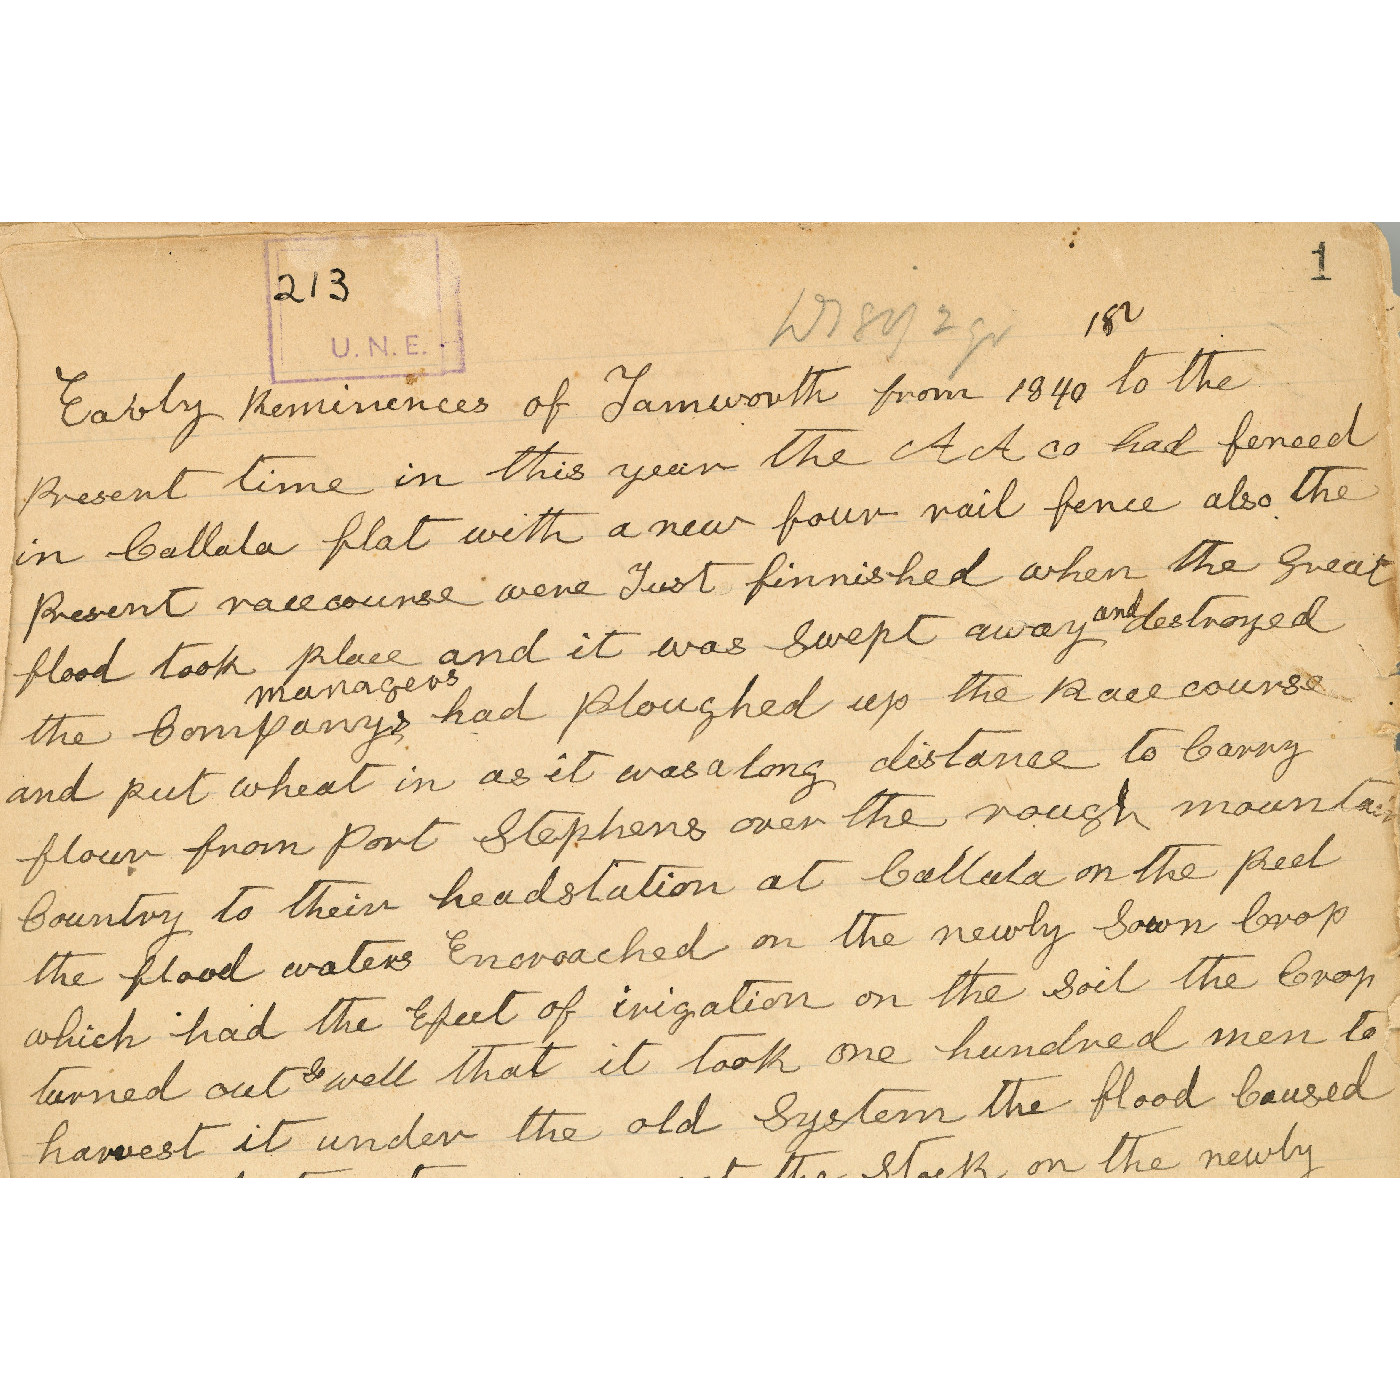 1
213
U.N.E.
Early Reminences of Tamworth from 1840 to the
Present time in this year the A A co had fenced
in Callala flat with a new four rail fence also the
Present racecourse were Just finnished when the Great
flood took place and it was swept away and destroyed
the Companys managers had Ploughed up the Race course
and put wheat in as it was a long distance to Carry
flour from Port Stephens over the rough mountain
Country to their headstation at Callala on the Peel
the flood waters Encroached on the newly Sown Crop
which had the Efect of irigation on the Soil the Crop
turned out so well that it took one hundred men to
harvest it under the old System the flood Caused
the Stock on the newly